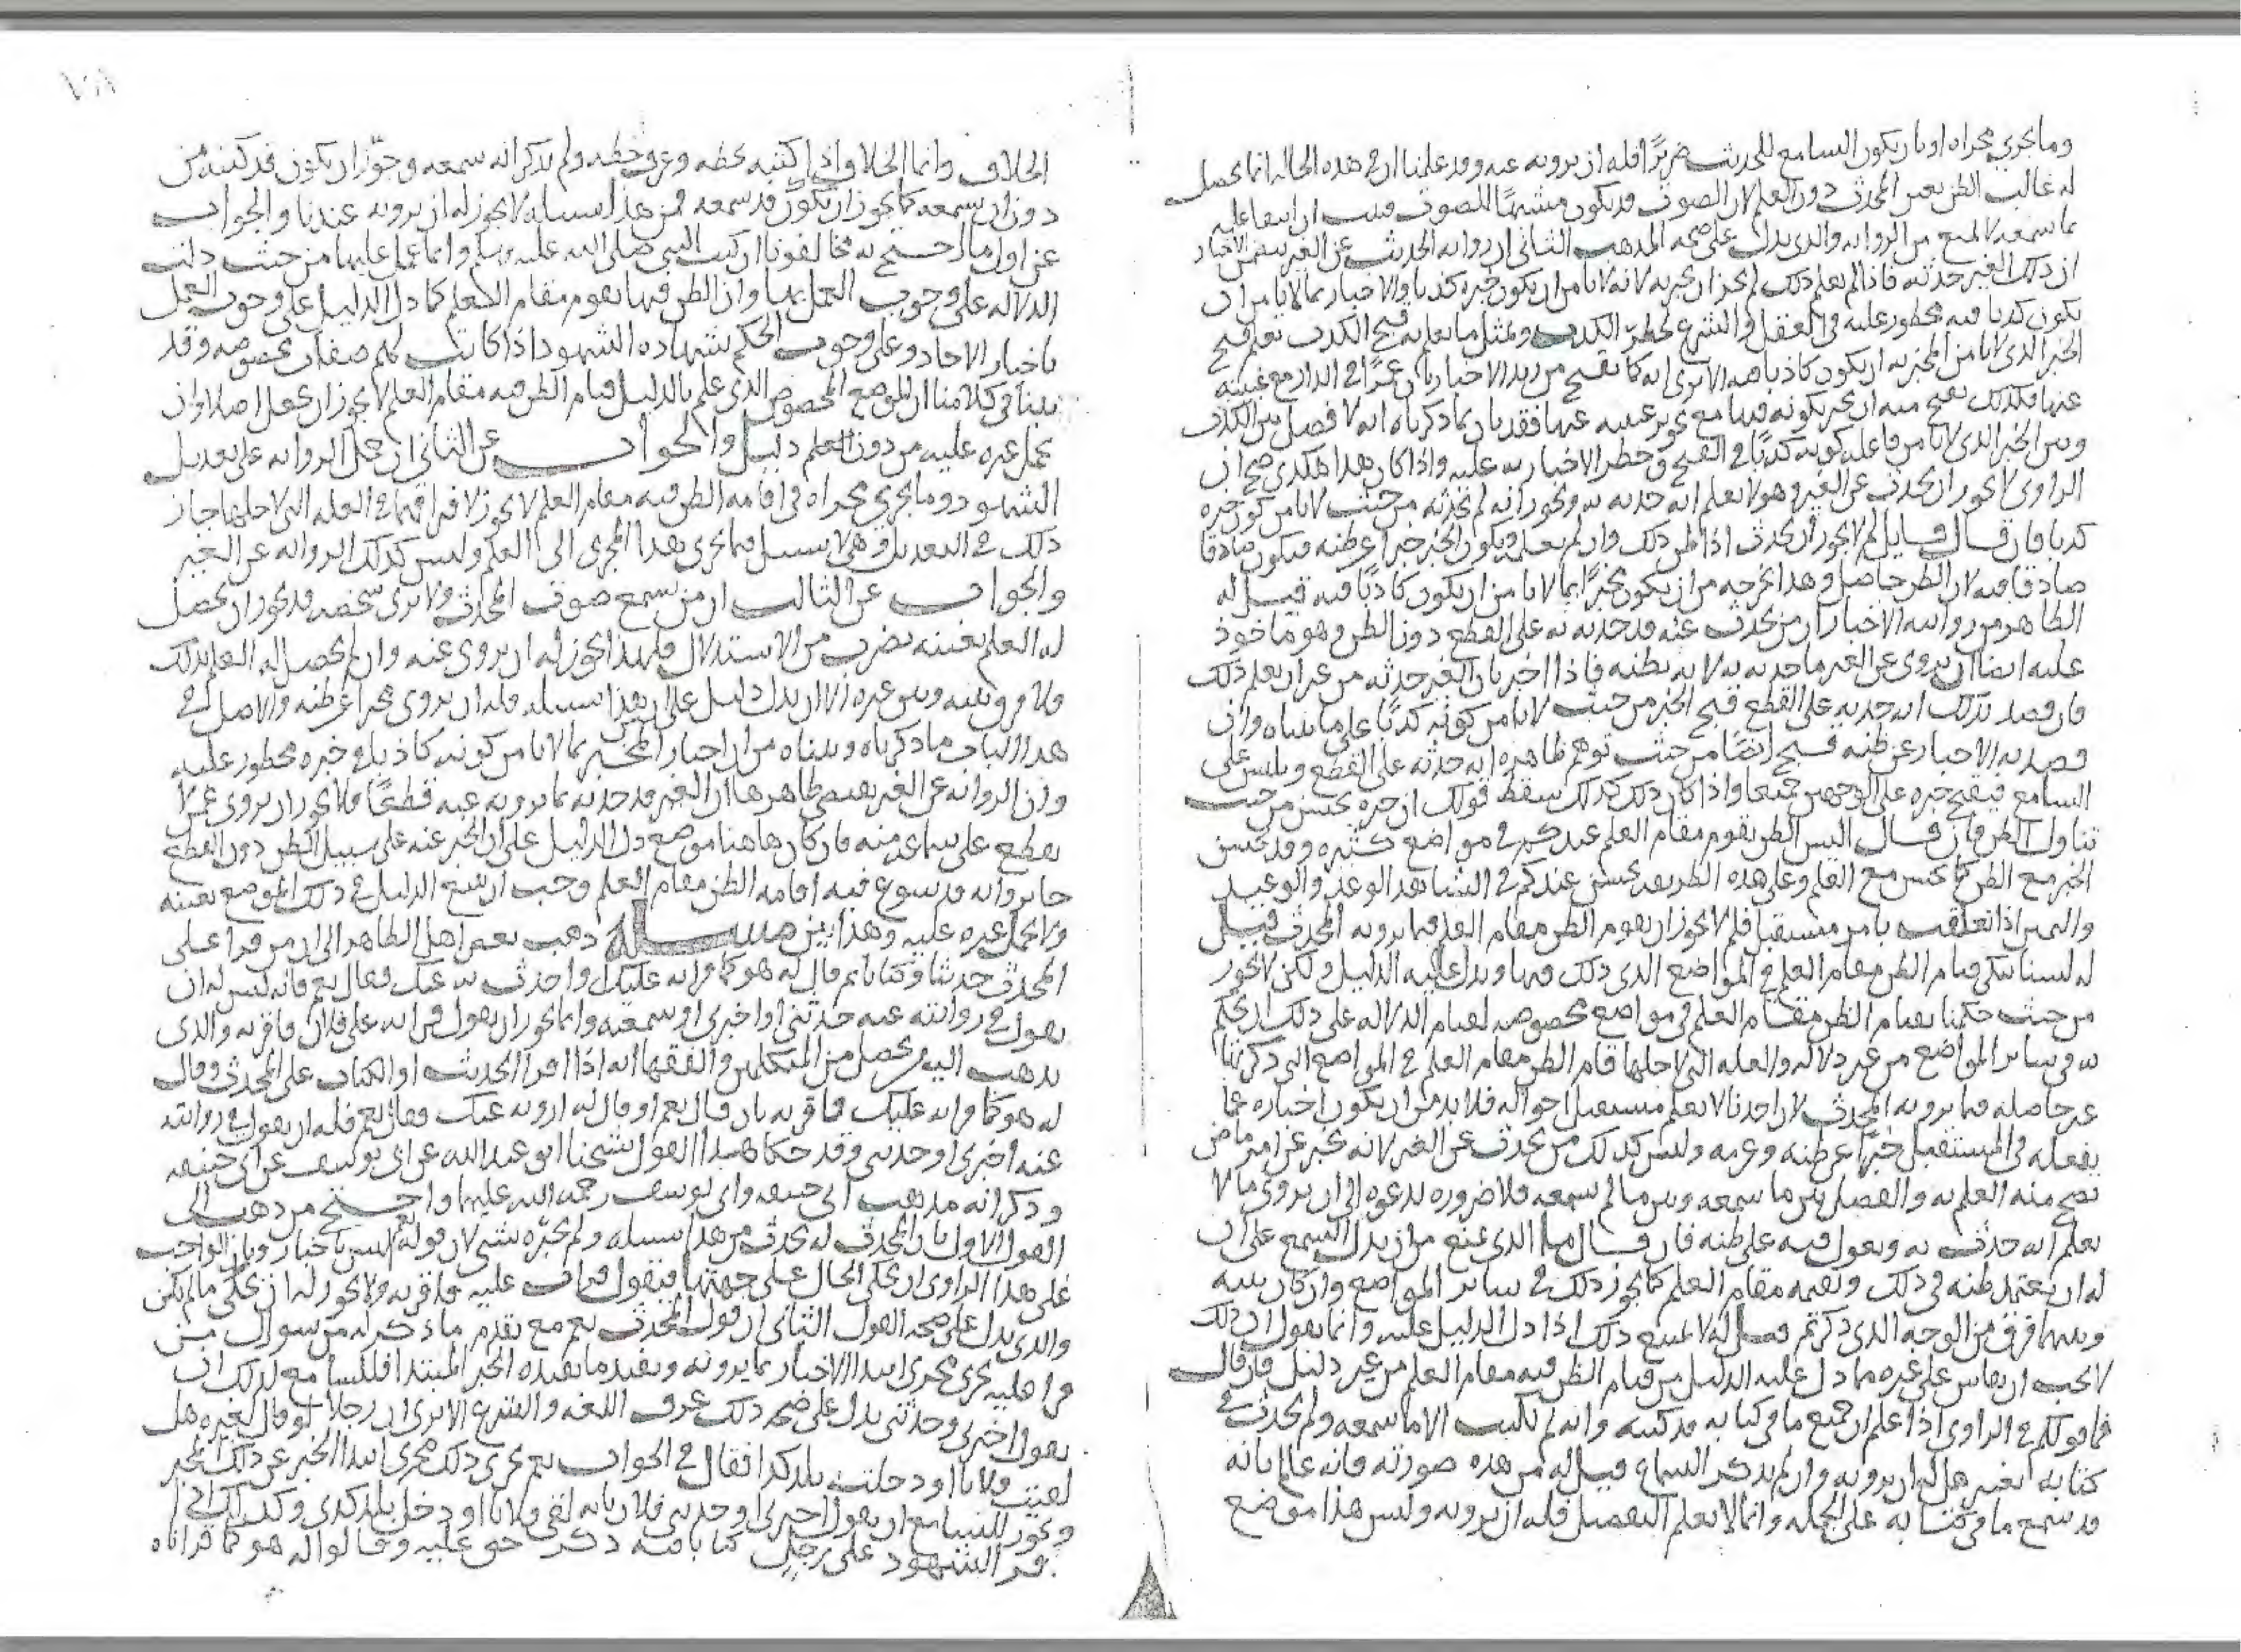 وما يجري مجراه او بان يكون السامع للحديث ضريرًا فله ان يرويه عنه وقد علمنا ان في هذه الحاله انما يحصل
له غالب الظن بعين المحدث دون العلم لان الصوت قد يكون مشبهًا للصوت فثبت ان انتفا علمه
بما سمعه لا يمنع من الروايه والذي يدل على صحه المذهب الثاني ان روايه الحديث عن الغير يتضمن الاخبار
ان ذلك الغير حدثه فاذا لم يعلم ذلك لم يجز ان يخبر به لانه لا يامن ان يكون خبره كذبا والاخبار بما لا يامن ان
يكون كذبا فيه محظور عليه في العقل والشرع لحظر الكذب وبمثل ما يعلم به قبح الكذب يعلم قبح
الخبر الذي لا يامن المخبر به ان يكون كاذبا فيه الا ترى انه كما يقبح من زيد الاخبار بان عمرًا في الدار مع غيبته
عنها فكذلك يقبح منه ان يخبر بكونه فيها مع تجويز غيبته عنها فقد بان بما ذكرناه انه لا فصل بين الكذب
وبين الخبر الذي لا يامن فاعله كونه كذبًا في القبح وحظر الاخبار به عليه واذا كان هذا هكذى صح ان
الراوي لا يجوز ان يحدث عن الغير وهو لا يعلم انه حدثه به ويجوز انه لم يحدثه من حيث لا يامن كون خبره
كذبا فان قال قايل لم لا يجوز ان يحدث اذا ظن ذلك وان لم يعلمه ويكون الخبر خبرا عن ظنه فيكون صادقا
صادقا فيه لان الظن حاصل وهذا يخرجه من ان يكون مخبرًا بما لا يامن ان يكون كاذبًا فيه قيل له
الظاهر من روايه الاخبار ان من يحدث عنه قد حدثه به على القطع دون الظن وهو ماخوذ
عليه ايضا ان يروي عن الغير ما حدثه به لا بظنه فاذا اخبر بان الغير حدثه من غير ان يعلم ذلك
فان قصد بذلك انه حدثه على القطع قبح الخبر من حيث لا يامن كونه كذبًا على ما بيناه وان
قصد به الاخبار عن ظنه قبح ايضًا من حيث توهم ظاهره انه حدثه على القطع ويلبس على
السامع فيقبح خبره على الوجهين جميعا واذا كان ذلك كذلك سقط قولك ان خبره يحسن من حيث
تناول الظن فان قال اليس الظن يقوم مقام العلم عندكم في مواضع كثيره وقد يحسن
الخبر مع الظن كما يحسن مع العلم وعلى هذه الطريقه يحسن عندكم في الشاهد الوعد والوعيد
واليمين اذا تعلقت بامر مستقبل فلم لا يجوز ان يقوم الظن مقام العلم فيما يرويه المحدث قيل
له لسنا ننكر قيام الظن مقام العلم في المواضع الذي ذلك فيها ويدل عليه الدليل ولكن لا يجوز
من حيث حكمنا بقيام الظن مقام العلم في مواضع مخصوصه لقيام الدلاله على ذلك ان يحكم
به في ساير المواضع من غير دلاله والعله التي لاجلها قام الظن مقام العلم في المواضع التي ذكرتها
غير حاصله فيما يرويه المحدث لان احدنا لا يعلم مستقبل احواله فلا بد من ان يكون اخباره عما
يفعله في المستقبل خبرًا عن ظنه وعزمه وليس كذلك من يحدث عن الغير لانه يخبر عن امر ماض
يصح منه العلم به والفصل بين ما سمعه وبين ما لم يسمعه فلا ضروره تدعوه الى ان يروي ما لا
يعلم انه حدث به ويعول فيه على ظنه فان قال ما الذي يمنع من ان يدل السمع على ان
له ان يعتمد ظنه في ذلك ويقيمه مقام العلم كما يجوز ذلك في ساير المواضع وان كان بينه
وبينها فرق من الوجه الذي ذكرتم قيل له لا يمتنع ذلك اذا دل الدليل عليه وانما نقول ان ذلك
لا يجب ان يقاس على غيره مما دل عليه الدليل من قيام الظن فيه مقام العلم من غير دليل فان قال
فما قولكم في الراوي اذا علم ان جميع ما في كتابه قد كتبه وانه لم يكتب الا ما سمعه ولم يحدث في
كتابه تغيير هل له ان يرويه وان لم يذكر السماع قيل له من هذه صورته فانه عالم بانه
قد سمع ما في كتابه على الجمله وانما لا يعلم التفصيل فله ان يرويه وليس هذا موضع
الخلاف وانما الخلاف اذا كتبه بخطه وعرف خطه ولم يذكر انه سمعه وجوّز ان يكون قد كتبه من
دون ان يسمعه كما يجوز ان يكون قد سمعه فمن هذا سبيله لا يجوز له ان يرويه عندنا والجواب
عن اول ما احتج به مخالفونا ان كتب النبي صلى الله عليه وسلم وانما عمل عليها من حيث دلت
الدلاله على وجوب العمل بها وان الظن فيها يقوم مقام العلم كما دل الدليل على وجوب العمل
باخبار الاحاد وعلى وجوب الحكم بشهاده الشهود اذا كانت لهم صفات مخصوصه وقد
بينا في كلامنا ان الموضع المخصوص الذي علم بالدليل قيام الظن فيه مقام العلم لا يجوز ان يجعل اصلا وان
يحمل غيره عليه من دون العلم دليل والجواب عن الثاني ان حمل الروايه على تعديل
الشهود وما يجري مجراه في اقامه الظن فيه مقام العلم لا يجوز لافتراقهما في العله التي لاجلها جاز
ذلك في التعديل وهي لا سبيل فيما يجري هذا المجرى الى العلم وليس كذلك الروايه عن الغير
والجواب عن الثالث ان من يسمع صوت المحدث ولا يرى شخصه قد يجوز ان يحصل
له العلم بعينه بضرب من الاستدلال فلهذا يجوز له ان يروي عنه وان لم يحصل له العلم بذلك
ولا فرق بينه وبين غيره الا ان يدل دليل على ان هذا سبيله فله ان يروي مخبرا عن ظنه والاصل في
هذا الباب ما ذكرناه وبيناه من ان اخبار المخبر بما لا يامن كونه كاذبا في خبره محظور عليه
وان الروايه عن الغير يقتضي ظاهرها ان الغير قد حدثه بما يرويه عنه قطعًا فلا يجوز ان يروي عمن لا
يقطع على سماعه منه فان كان هاهنا موضع دل الدليل على ان الخبر عنه على سبيل الظن دون القطع
جا بروايه قد سوغ فيه اقامه الظن مقام العلم وجب ان يتبع الدليل في ذلك الموضع بعينه
ولا يحمل غيره عليه وهذا بين مسله ذهب بعض اهل الظاهر الى ان من قرا على
المحدث حديثا وكتابا ثم قال له هو كما قراته عليك واحدث به عنك فقال نعم فانه ليس له ان
يقول في روايته عنه حدثني او اخبرني او سمعته وانما يجوز ان يقول قراته على فلان فاقر به والذي
يذهب اليه من يحصل من المتكلمين والفقها انه اذا قرا الحديث او الكتاب على المحدث وقال
له هو كما قراته عليك فاقر به بان قال نعم او قال له ارويه عنك فقال نعم فله ان يقول في روايته
عنه اخبرني او حدثني وقد حكا هذا القول شيخنا ابو عبد الله عن ابي يوسف عن ابي حنيفه
وذكر انه مذهب ابي حنيفه وابي يوسف رحمه الله عليهما واحتج من ذهب الى
القول الاول بان المحدث له يحدث من هذا سبيله ولم يخبره بشي لان قوله نعم ليس باخبار وبان الواجب
على هذا الراوي ان يحكي الحال على جهتها فيقول قرات عليه فاقر به ولا يجوز له ان يحكي ما لم يكن
والذي يدل على صحه القول الثاني ان قول المحدث نعم مع تقدم ما ذكر له من سوال من
قرا عليه يجري مجرى ابتدا الاخبار بما يرويه ويفيد ما يفيده الخبر المبتدا فللسامع لذلك ان
يقول اخبرني وحدثني يدل على صحه ذلك عرف اللغه والشرع الا ترى ان رجلا لو قال لغيره هل
لقيت فلانا او دخلت بلد كذا فقال في الجواب نعم جرى ذلك مجرى ابتدا الخبر عن ذلك المخبر
ويجوز للسامع ان يقول اخبرني او حدثني فلان بانه لقي فلانا او دخل بلد كذى وكذلك اذا
قرا الشهود على رجل كتابا فيه ذكر حق عليه وقالوا له هو كما قراناه